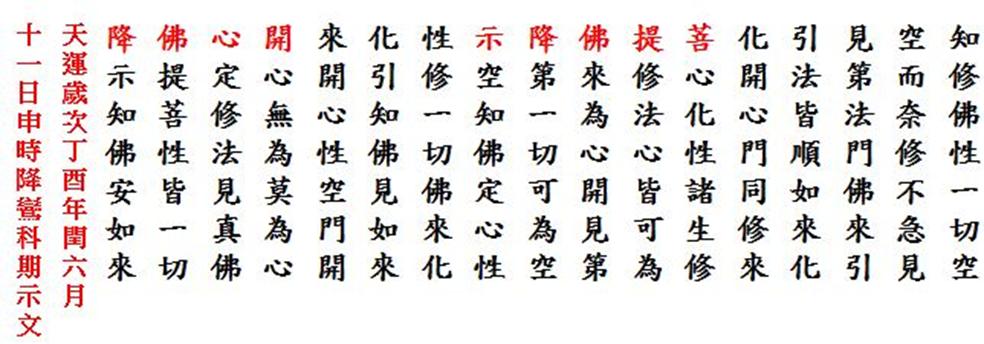 知修佛性一切空
空而奈修不急見
見第法門佛來引
引法皆順如來化
化開心門同修來
菩心化性諸生修
提修法心皆可為
佛來為心開見第
降第一切可為空
示空知佛定心性
性修一切佛來化
化引知佛見如來
來開心性空門開
開心無為莫為心
心定修法見真佛
佛提菩性皆一切
降示知佛安如來
天運歲次丁酉年閏六月
十一日申時降鸞科期示文